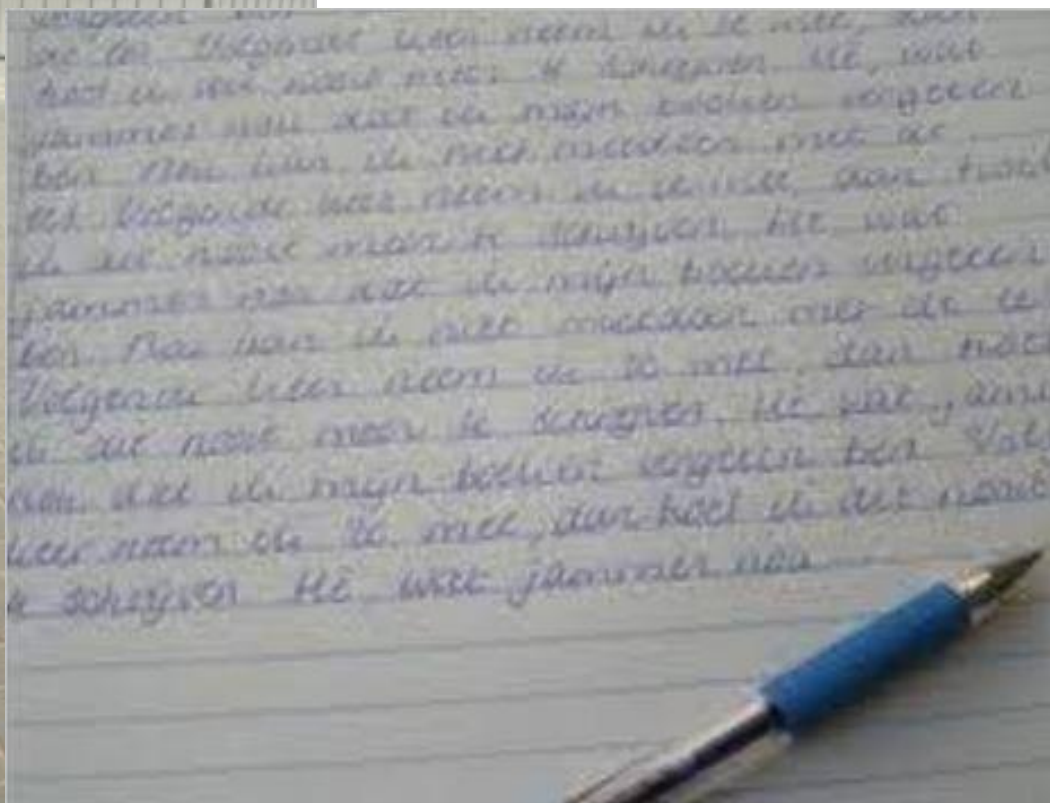 vergeten
de les Volgende keer neem ik ze mee, dan
hoef ik dit nooit meer te schrijven Hè, wat
jammer nou dat ik mijn boeken vergeten
ben Nou kan ik niet meedoen met de
les Volgende keer neem ik ze mee, dan hoef
ik dit nooit meer te schrijven, Hè wat
jammer nou dat ik mijn boeken vergeten
ben Nou kan ik niet meedoen met de le
Volgende keer neem ik ze mee, dan hoef
ik dit nooit meer te schrijven. Hè wat jam
nou dat ik mijn boeken vergeten ben Vol
keer neem ik ze mee, dan hoef ik dit nooit
te schrijven Hè wat jammer nou